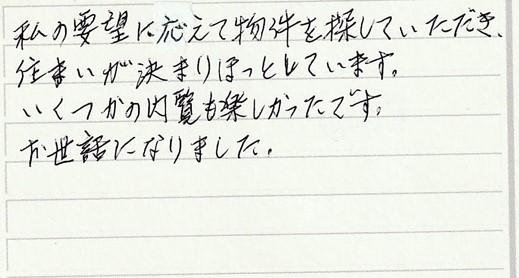 私の要望に応えて物件を探していただき、
住まいが決まりほっとしています。
いくつかの内覧も楽しかったです。
お世話になりました。